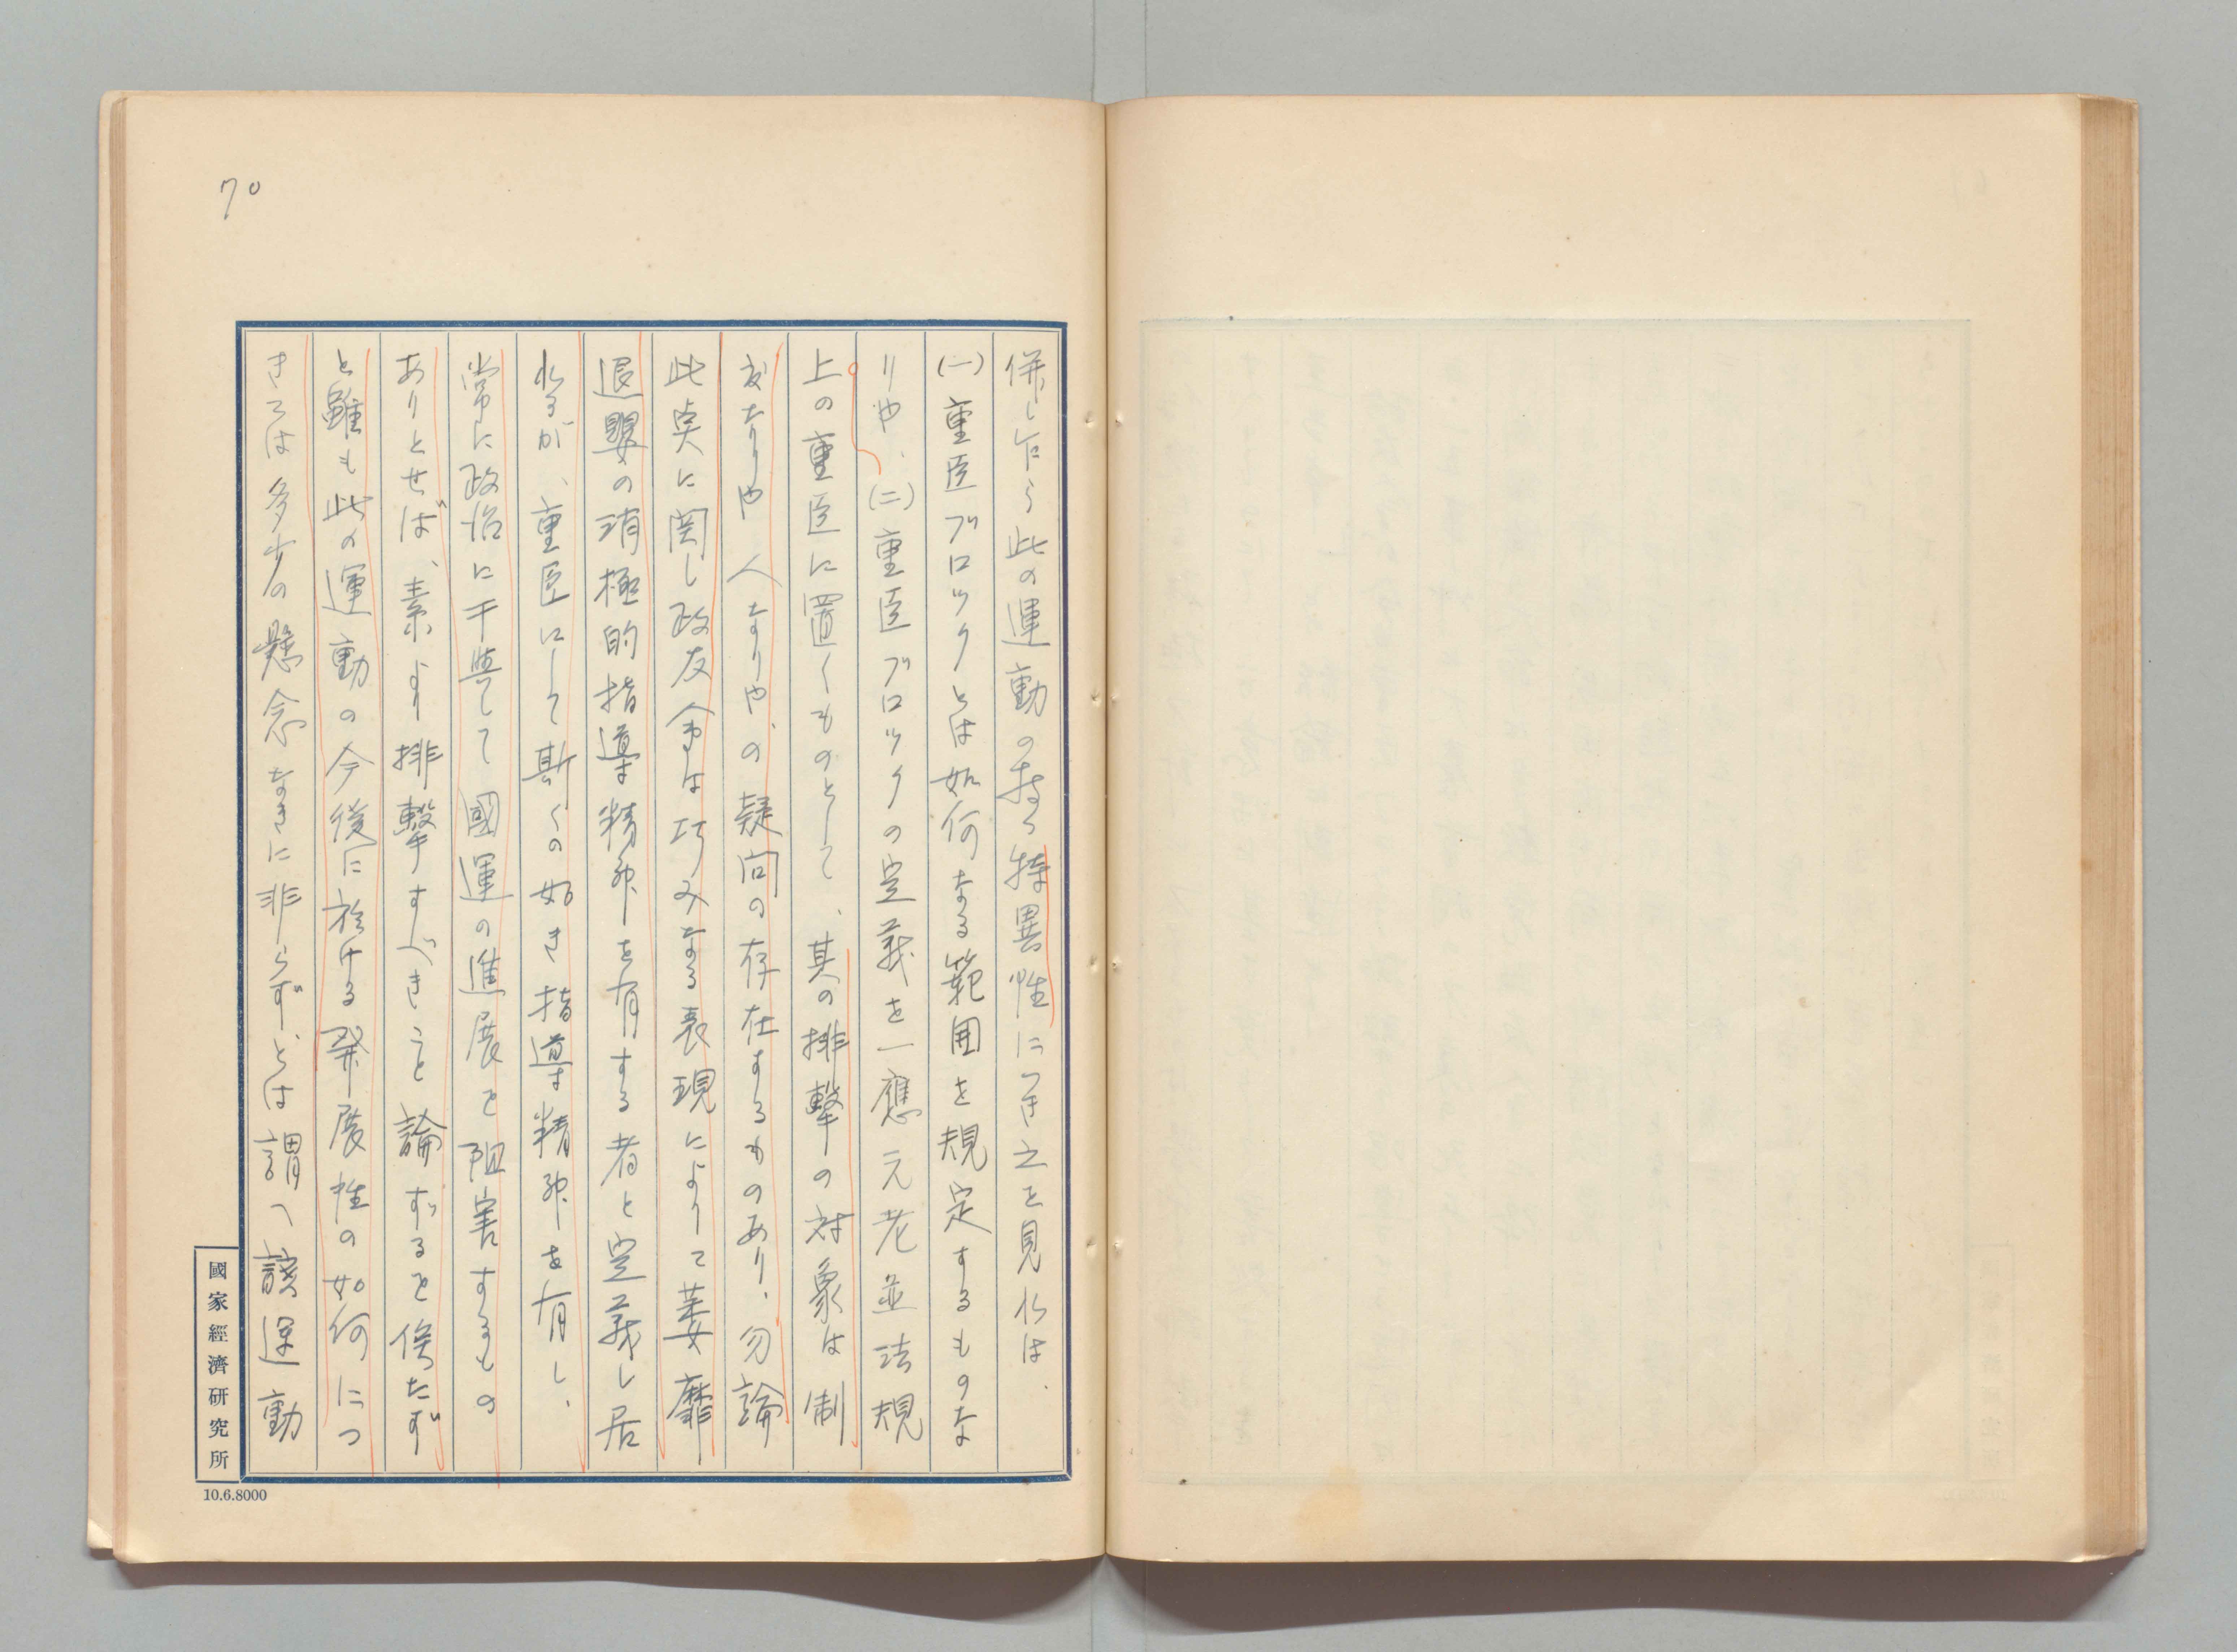 70
併し乍ら此の運動の持つ特異性につき之を見れば、
(一)重臣ブロックとは如何なる範囲を規定するものな
りや、(二)重臣ブロックの定義を一應元老並法規
上の重臣に置くものとして、其の排撃の対象は制
度なりや人なりや、の疑问の存在するものあり、勿論
此奌に関し政友会は巧みなる表現によりて萎靡
退嬰の消極的指導精神を有する者と定義し居
れるが、重臣にして斯くの如き指導精神を有し、
常に政治に干與して國運の進展を阻害するもの
ありとせば、素より排撃すべきこと論ずるを俟たず
と雖も此の運動の今後に於ける発展性の如何につ
きては多少の懸念なきに非らず、とは謂へ該運動
國家經濟研究所
10.6.8000